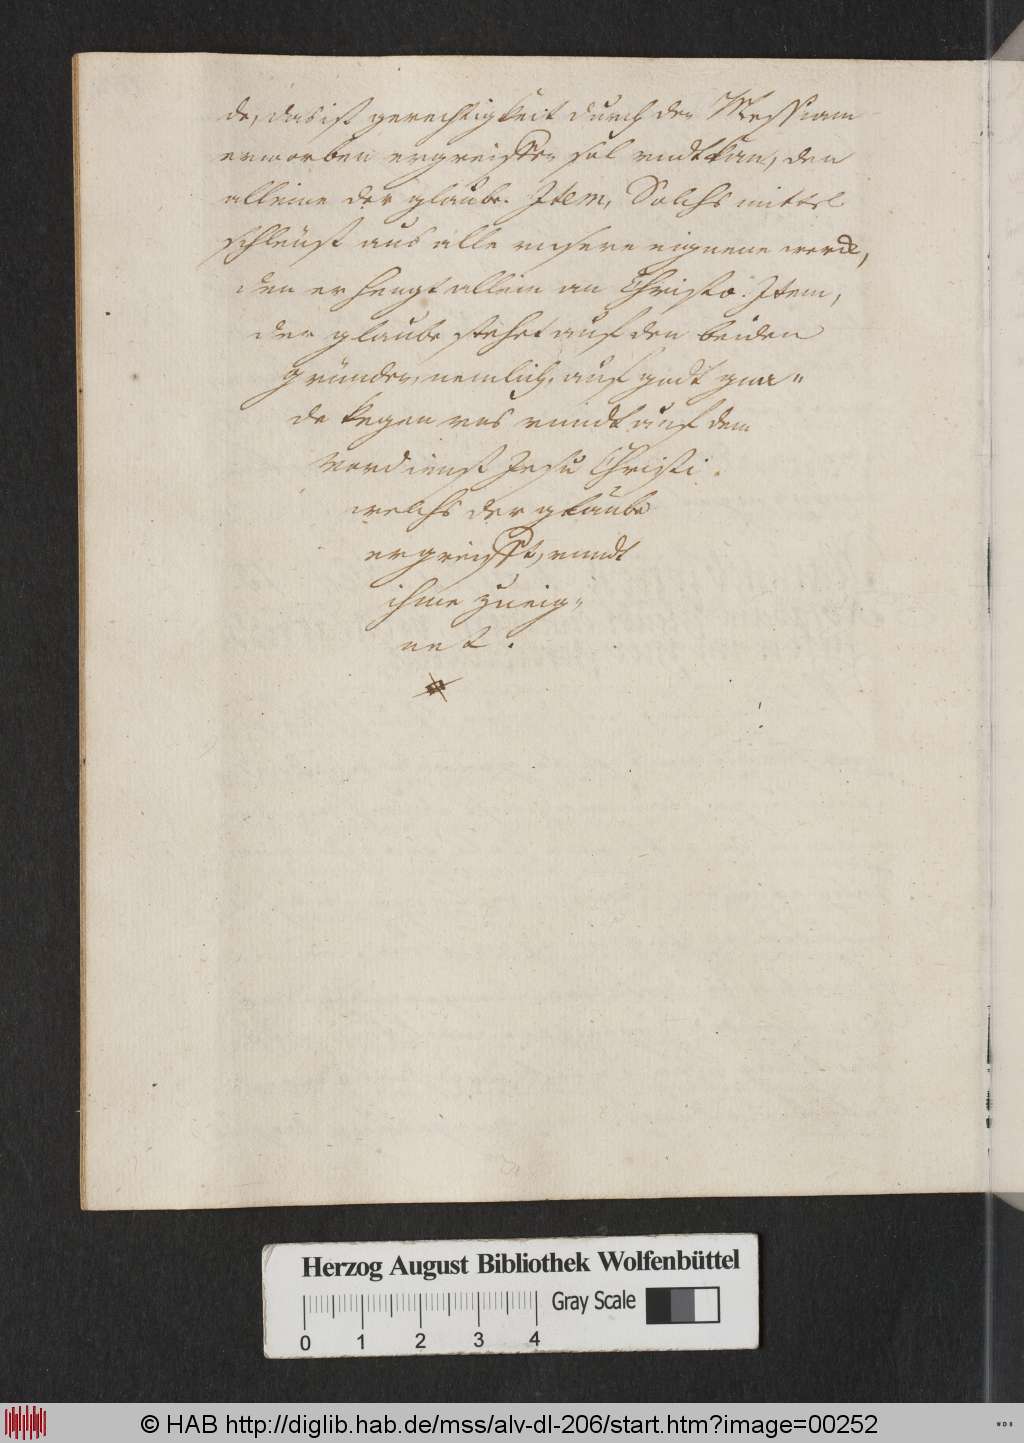 de, das ist gerechtigkeit durch den Messiam
erworben ergreiffen sol undt kan, den
alleine der glaube. Item, Solchs mittel
schleüst aus alle unsere eignene werck,
den er hengt allein an Christo. Item,
der glaube stehet auf den beiden
gründen, nemlich, auf godt gna-
de kegen uns unndt auf dem
Vordienst Jesu Christi.
welchs der glaube
ergreifft, unndt
ihme zueig-
net.
Herzog August Bibliothek Wolfenbüttel
Gray Scale
0 1 2 3 4
© HAB http://diglib.hab.de/mss/alv-dl-206/start.htm?image=00252
WDB